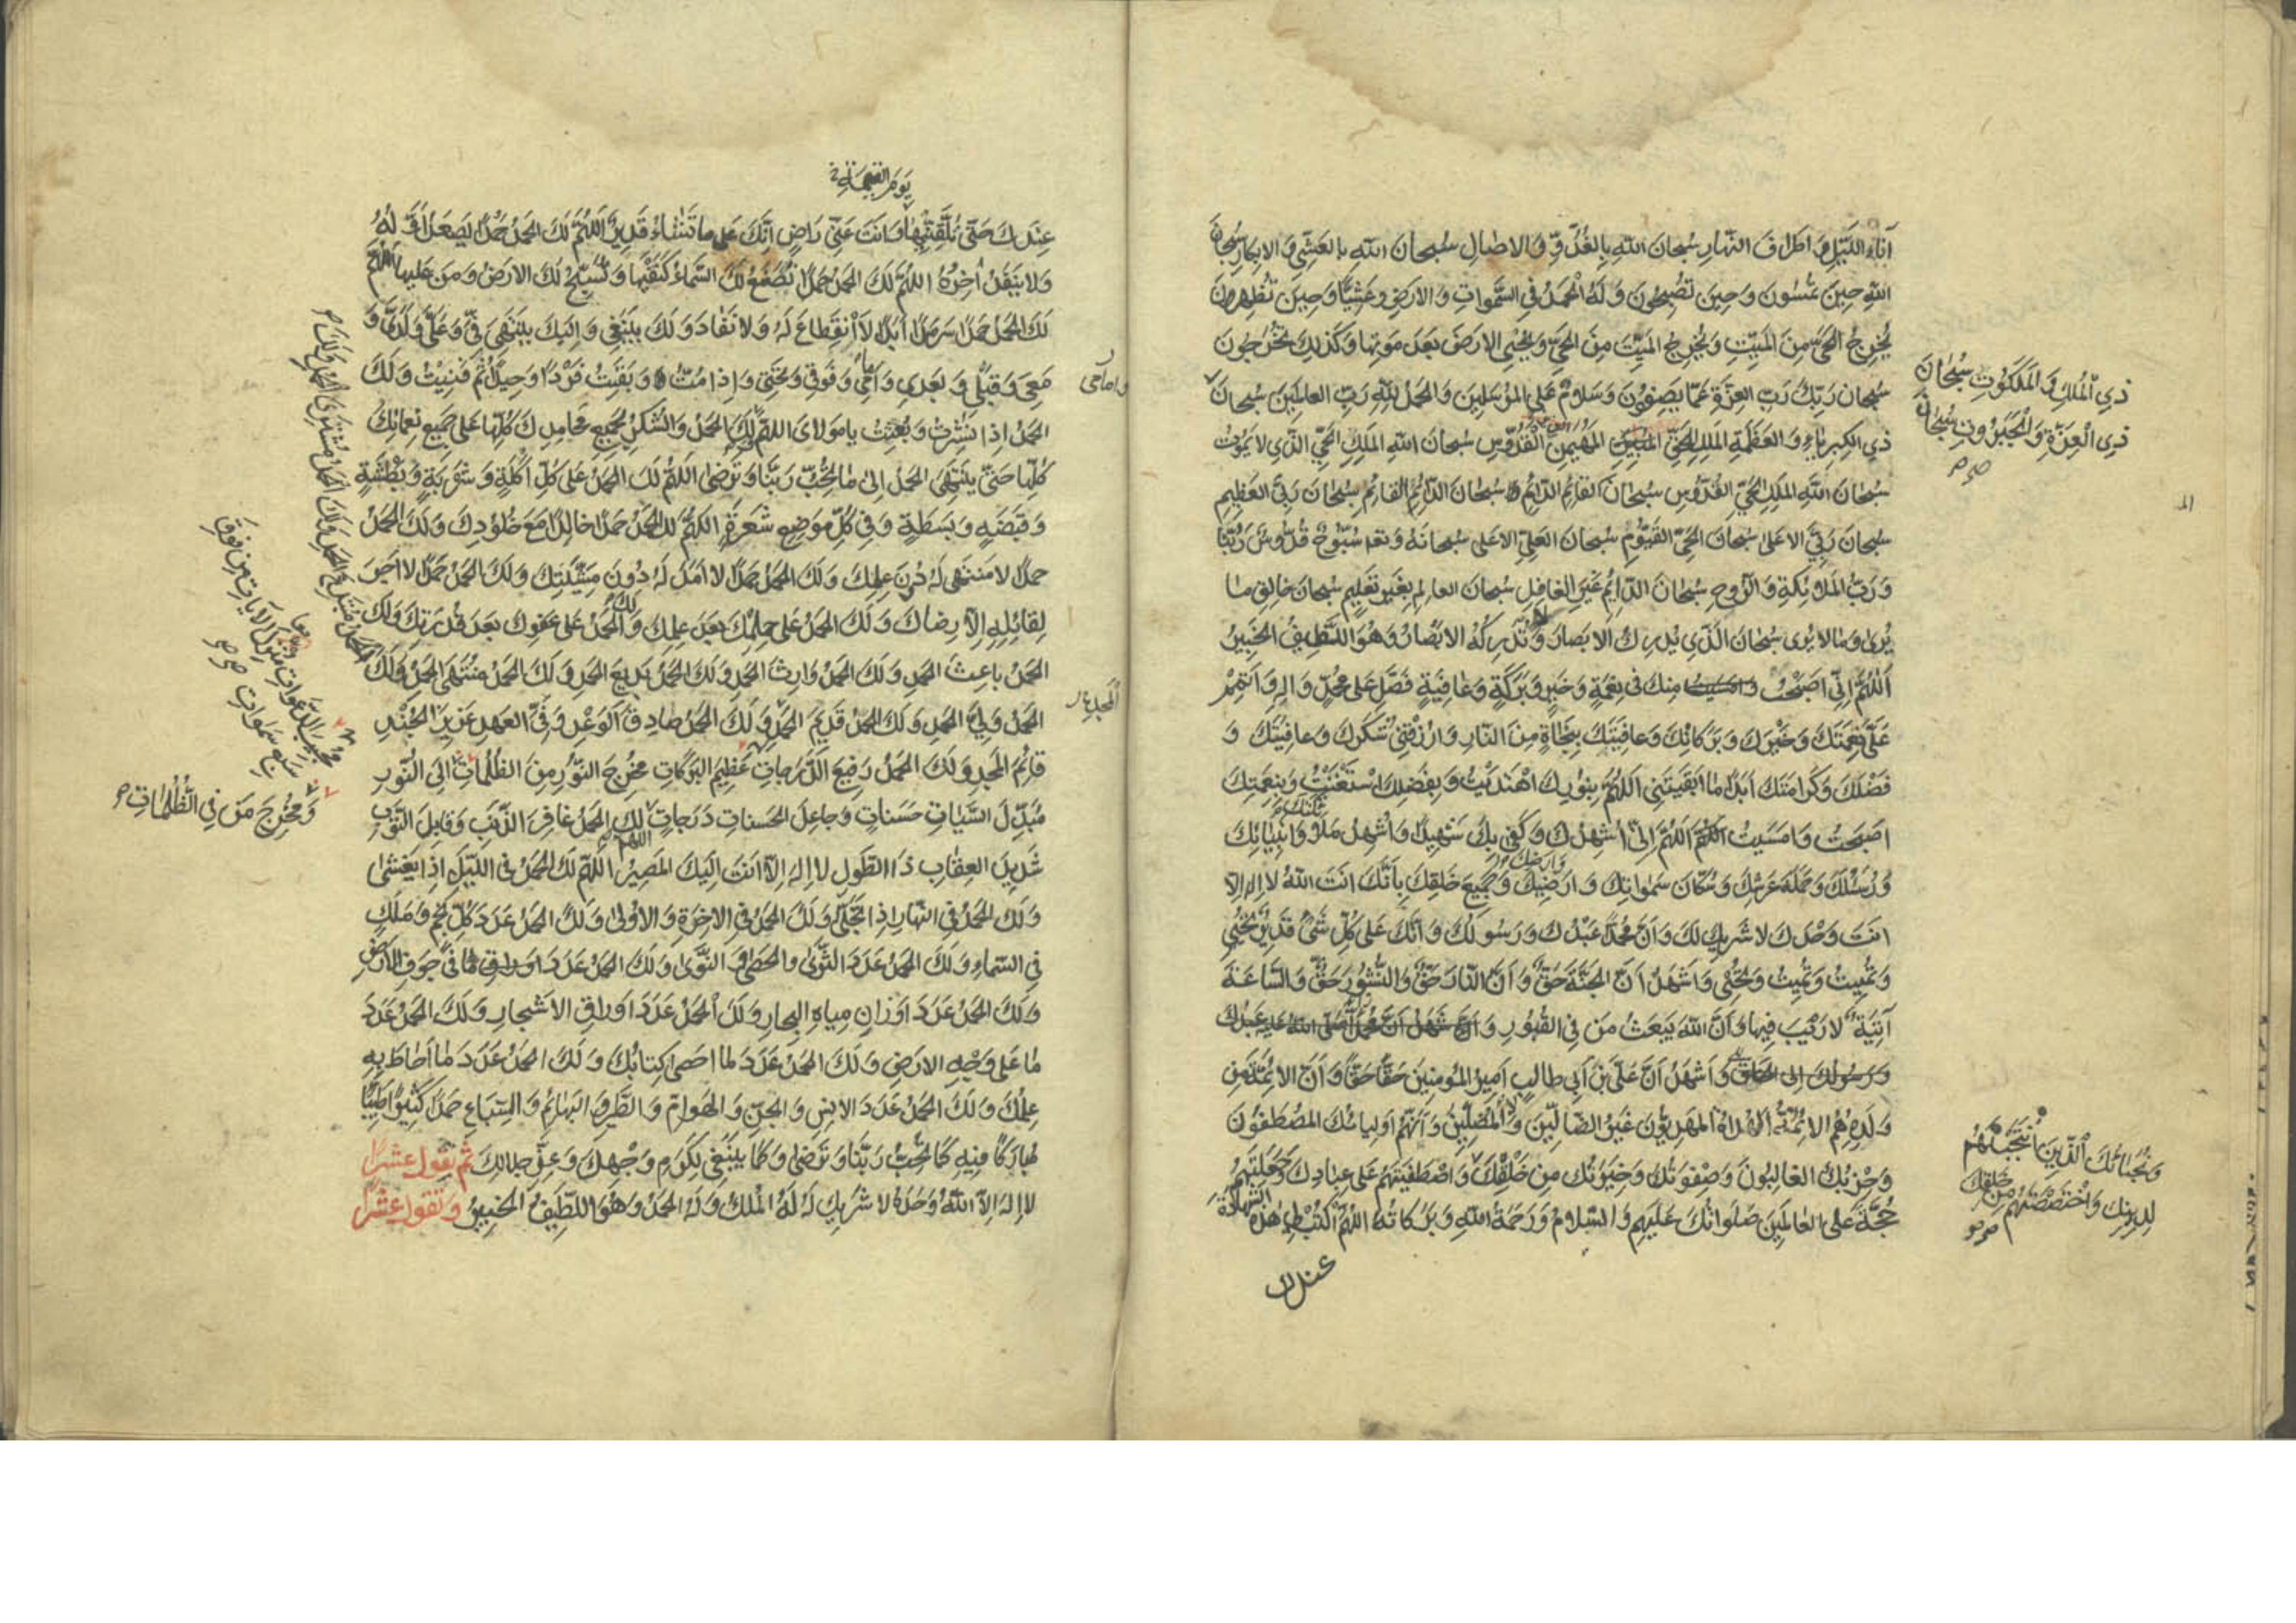 آناءَ اللَّيْلِ وَ اطرافَ النَّهارِ سُبحانَ اللهِ بِالغُدُوِّ وَالاصٰالِ سُبحانَ اللهِ بِالعَشِيِّ وَ الابكارِ سُبحانَ
اللهِ حينَ تُمْسُونَ وَحينَ تُصْبِحُونَ وَ لَهُ الْحَمْدُ فِي السَّمٰواتِ وَالارَضِ وَعَشِيّاً وَحينَ تُظْهِرُونَ
يُخرِجُ الحَيَّ مِنَ المَيِّتِ وَيُخرِجُ المَيِّتَ مِنَ الحَيِّ وَيُحْيِي الارضَ بَعْدَ مَوتِها وَكَذلِكَ تُخْرَجُونَ
سُبحانَ رَبِّكَ رَبِّ العِزَّةِ عَمّا يَصِفُونَ وَسَلامٌ عَلَى المُرْسَلينَ وَالحَمْدُ لِلّهِ رَبِّ العالَمينَ سُبحانَ
ذِي الْمُلْكِ وَ الْمَلَكُوتِ سُبْحانَ
ذِي الْعِزَّةِ وَالْجَبَرُوتِ سُبْحانَ
ذِي الكِبرِياءِ وَ العَظَمَةِ المَلِكِ الحَقِّ المُبينِ المُهَيْمِنِ القُدُّوسِ سُبحانَ اللهِ المَلِكِ الحَيِّ الَّذي لا يَمُوتُ
سُبحانَ اللهِ المَلِكِ الحَيِّ القُدُّوسِ سُبحانَ القائِمِ الدّائِمِ سُبحانَ الدّائِمِ القائِمِ سُبحانَ رَبِّيَ العَظيمِ
سُبحانَ رَبِّيَ الاعلى سُبحانَ الحَيِّ القَيُّومِ سُبحانَ العَلِيِّ الاعلى سُبحانَهُ وَتعالى سُبُّوحٌ قُدُّوسٌ رَبُّنا
وَ رَبُّ المَلائِكَةِ وَ الرُّوحِ سُبحانَ الدّائِمِ غَيرِ الغافِلِ سُبحانَ العالِمِ بِغَيرِ تَعليمٍ سُبحانَ خالِقِ ما
يُرى وَما لا يُرى سُبحانَ الَّذي يُدرِكُ الابصارَ وَلا تُدْرِكُهُ الابْصارُ وَهُوَ اللَّطيفُ الخَبيرُ
اَللّهُمَّ اِنّي اَصْبَحْتُ مِنكَ في نِعْمَةٍ وَ خَيرٍ وَ بَرَكَةٍ وَ عافِيَةٍ فَصَلِّ عَلى مُحَمَّدٍ وَ الِهِ وَ اَتْمِمْ
عَلَيَّ نِعْمَتَكَ وَ خَيْرَكَ وَ بَرَكاتِكَ وَ عافِيَتَكَ بِنَجاةٍ مِنَ النّارِ وَ ارْزُقْني شُكْرَكَ وَ عافِيَتَكَ وَ
فَضْلَكَ وَ كَرامَتَكَ اَبَداً ما اَبْقَيْتَني اَللّهُمَّ بِنُورِكَ اهْتَدَيْتُ وَ بِفَضْلِكَ اسْتَغْنَيْتُ وَ بِنِعْمَتِكَ
اَصْبَحْتُ وَ اَمْسَيْتُ اَللّهُمَّ اِنّي اُشْهِدُكَ وَ كَفى بِكَ شَهيداً وَ اُشْهِدُ مَلائِكَتَكَ وَ اَنْبِياءَكَ
وَ رُسُلَكَ وَ حَمَلَةَ عَرْشِكَ وَ سُكّانَ سَمٰواتِكَ وَ ارَضيكَ وَ جَميعَ خَلْقِكَ بِاَنَّكَ اَنْتَ اللهُ لا اِلهَ اِلاّ
انتَ وَحْدَكَ لا شَريكَ لَكَ وَ اَنَّ مُحَمَّداً عَبْدُكَ وَ رَسُولُكَ وَ اَنَّكَ عَلى كُلِّ شَيْءٍ قَديرٌ تُحْيي
وَ تُميتُ وَ تُميتُ وَ تُحْيي وَ اَشْهَدُ اَنَّ الجَنَّةَ حَقٌّ وَ اَنَّ النّارَ حَقٌّ وَ النُّشُورَ حَقٌّ وَ السّاعَةَ
آتِيَةٌ لا رَيْبَ فيها وَ اَنَّ اللهَ يَبْعَثُ مَنْ فِي القُبُورِ وَ
وَ اَشْهَدُ اَنَّ عَلِيَّ بْنَ اَبي طالِبٍ اَميرُ المُؤمِنينَ حَقّاً حَقّاً وَ اَنَّ الائِمَّةَ مِن
وُلْدِهِ هُمُ الائِمَّةُ الهُداةُ المَهْدِيُّونَ غَيْرُ الضّالّينَ وَلا المُضِلّينَ وَ اَنَّهُمْ اَولِياؤُكَ المُصْطَفَوْنَ
وَ حِزْبُكَ الغالِبُونَ وَ صِفْوَتُكَ وَ خِيَرَتُكَ مِن خَلْقِكَ
وَ نُجَباؤُكَ الَّذينَ انْتَجَبْتَهُمْ
لِدينِكَ وَ اخْتَصَصْتَهُمْ مِن خَلْقِكَ
وَ اصْطَفَيْتَهُمْ عَلى عِبادِكَ وَ جَعَلْتَهُمْ
حُجَّةً عَلَى العالَمينَ صَلَواتُكَ عَلَيهِم وَ السَّلامُ وَ رَحْمَةُ اللهِ وَ بَرَكاتُهُ اَللّهُمَّ اكْتُبْ لي هٰذِهِ الشَّهادَةَ
عندك
يَومَ القِيامَةِ
عِنْدَكَ حَتّى تُلَقِّنَنيها وَ اَنتَ عَنّي راضٍ اِنَّكَ عَلى ما تَشاءُ قَديرٌ اَللّهُمَّ لَكَ الحَمْدُ حَمْداً يَصْعَدُ اَوَّلُهُ
وَ لا يَنْفَدُ آخِرُهُ اَللّهُمَّ لَكَ الحَمْدُ حَمْداً تَضَعُ لَكَ السَّماءُ كَنَفَيْها وَ تُسَبِّحُ لَكَ الارَضُ وَ مَنْ عَلَيها اَللّهُمَّ
لَكَ الحَمْدُ حَمْداً سَرْمَداً اَبَداً لاَ انْقِطاعَ لَهُ وَ لا نَفادَ وَ لَكَ يَنْبَغي وَ اِلَيْكَ يَنْتَهي فِيَّ وَ عَلَيَّ وَ لَدَيَّ وَ
مَعي وَ قَبْلي وَ بَعْدي وَ اَمامي وَ فَوْقي وَ تَحْتي وَ اِذا مُتُّ وَ بَقيتُ فَرْداً وَحيداً ثُمَّ فَنيتُ وَ لَكَ
الحَمْدُ اِذا نُشِرْتُ وَ بُعِثْتُ يا مَولايَ اَللّهُمَّ لَكَ الحَمْدُ وَ الشُّكْرُ بِجَميعِ مَحامِدِكَ كُلِّها عَلى جَميعِ نَعمائِكَ
كُلِّها حَتّى يَنْتَهِيَ الحَمْدُ اِلى ما تُحِبُّ رَبَّنا وَ تَرْضى اَللّهُمَّ لَكَ الحَمْدُ عَلى كُلِّ اَكْلَةٍ وَ شَرْبَةٍ وَ بَطْشَةٍ
وَ قَبْضَةٍ وَ بَسْطَةٍ وَ في كُلِّ مَوْضِعِ شَعْرَةٍ اَللّهُمَّ لَكَ الحَمْدُ حَمْداً خالِداً مَعَ خُلُودِكَ وَ لَكَ الحَمْدُ
حَمْداً لا مُنْتَهى لَهُ دُونَ عِلْمِكَ وَ لَكَ الحَمْدُ حَمْداً لا اَمَدَ لَهُ دُونَ مَشِيَّتِكَ وَ لَكَ الحَمْدُ حَمْداً لا اَجرَ
لِقائِلِهِ اِلاّ رِضاكَ وَ لَكَ الحَمْدُ عَلى حِلْمِكَ بَعْدَ عِلْمِكَ وَ لَكَ الحَمْدُ عَلى عَفْوِكَ بَعْدَ قُدْرَتِكَ وَ لَكَ
الحَمْدُ باعِثَ الحَمْدِ وَ لَكَ الحَمْدُ وارِثَ الحَمْدِ وَ لَكَ الحَمْدُ بَديعَ الحَمْدِ وَ لَكَ الحَمْدُ مُنْتَهَى الحَمْدِ وَ لَكَ
الحَمْدُ مُبْتَدِعَ الحَمْدِ وَ لَكَ الحَمْدُ مُشْتَرِيَ الحَمْدِ وَ لَكَ
الحَمْدُ وَلِيَّ الحَمْدِ وَ لَكَ الحَمْدُ قَديمَ الحَمْدِ وَ لَكَ الحَمْدُ صادِقَ الوَعْدِ وَفِيَّ العَهْدِ عَزيزَ الجُنْدِ
قائِمَ المَجْدِ وَ لَكَ الحَمْدُ رَفيعَ الدَّرَجاتِ
مُجيبَ الدَّعَواتِ مُنْزِلَ الآياتِ مِن فَوقِ
سَبْعِ سَمٰواتٍ
عَظيمَ البَرَكاتِ مُخْرِجَ النُّورِ مِنَ الظُّلُماتِ
وَ مُخْرِجَ مَنْ فِي الظُّلُماتِ
اِلَى النُّورِ
مُبَدِّلَ السَّيِّئاتِ حَسَناتٍ وَ جاعِلَ الحَسَناتِ دَرَجاتٍ اللهم لَكَ الحَمْدُ غافِرَ الذَّنْبِ وَ قابِلَ التَّوْبِ
شَديدَ العِقابِ ذَا الطَّوْلِ لا اِلهَ اِلاّ اَنْتَ اِلَيْكَ المَصيرُ اَللّهُمَّ لَكَ الحَمْدُ فِي اللَّيْلِ اِذا يَغْشى
وَ لَكَ الحَمْدُ فِي النَّهارِ اِذا تَجَلّى وَ لَكَ الحَمْدُ فِي الآخِرَةِ وَ الاُولى وَ لَكَ الحَمْدُ عَدَدَ كُلِّ نَجْمٍ وَ مَلَكٍ
فِي السَّماءِ وَ لَكَ الحَمْدُ عَدَدَ الثَّرى وَ الحَصى وَ النَّوى وَ لَكَ الحَمْدُ عَدَدَ ما في جَوْفِ الارَضِ
وَ لَكَ الحَمْدُ عَدَدَ اَوزانِ مِياهِ البِحارِ وَ لَكَ الحَمْدُ عَدَدَ اَوراقِ الاَشْجارِ وَ لَكَ الحَمْدُ عَدَدَ
ما عَلى وَجْهِ الارَضِ وَ لَكَ الحَمْدُ عَدَدَ ما اَحْصى كِتابُكَ وَ لَكَ الحَمْدُ عَدَدَ ما اَحاطَ بِهِ
عِلْمُكَ وَ لَكَ الحَمْدُ عَدَدَ الاِنسِ وَ الجِنِّ وَ الهَوامِّ وَ الطَّيْرِ وَ البَهائِمِ وَ السِّباعِ حَمْداً كَثيراً طَيِّباً
مُبارَكاً فيهِ كَما تُحِبُّ رَبَّنا وَ تَرْضى وَ كَما يَنْبَغي لِكَرَمِ وَجْهِكَ وَ عِزِّ جَلالِكَ ثُمَّ تَقُولُ عَشْراً
لا اِلهَ اِلاّ اللهُ وَحْدَهُ لا شَريكَ لَهُ لَهُ المُلْكُ وَ لَهُ الحَمْدُ وَ هُوَ اللَّطيفُ الخَبيرُ وَ تَقُولُ عَشْراً